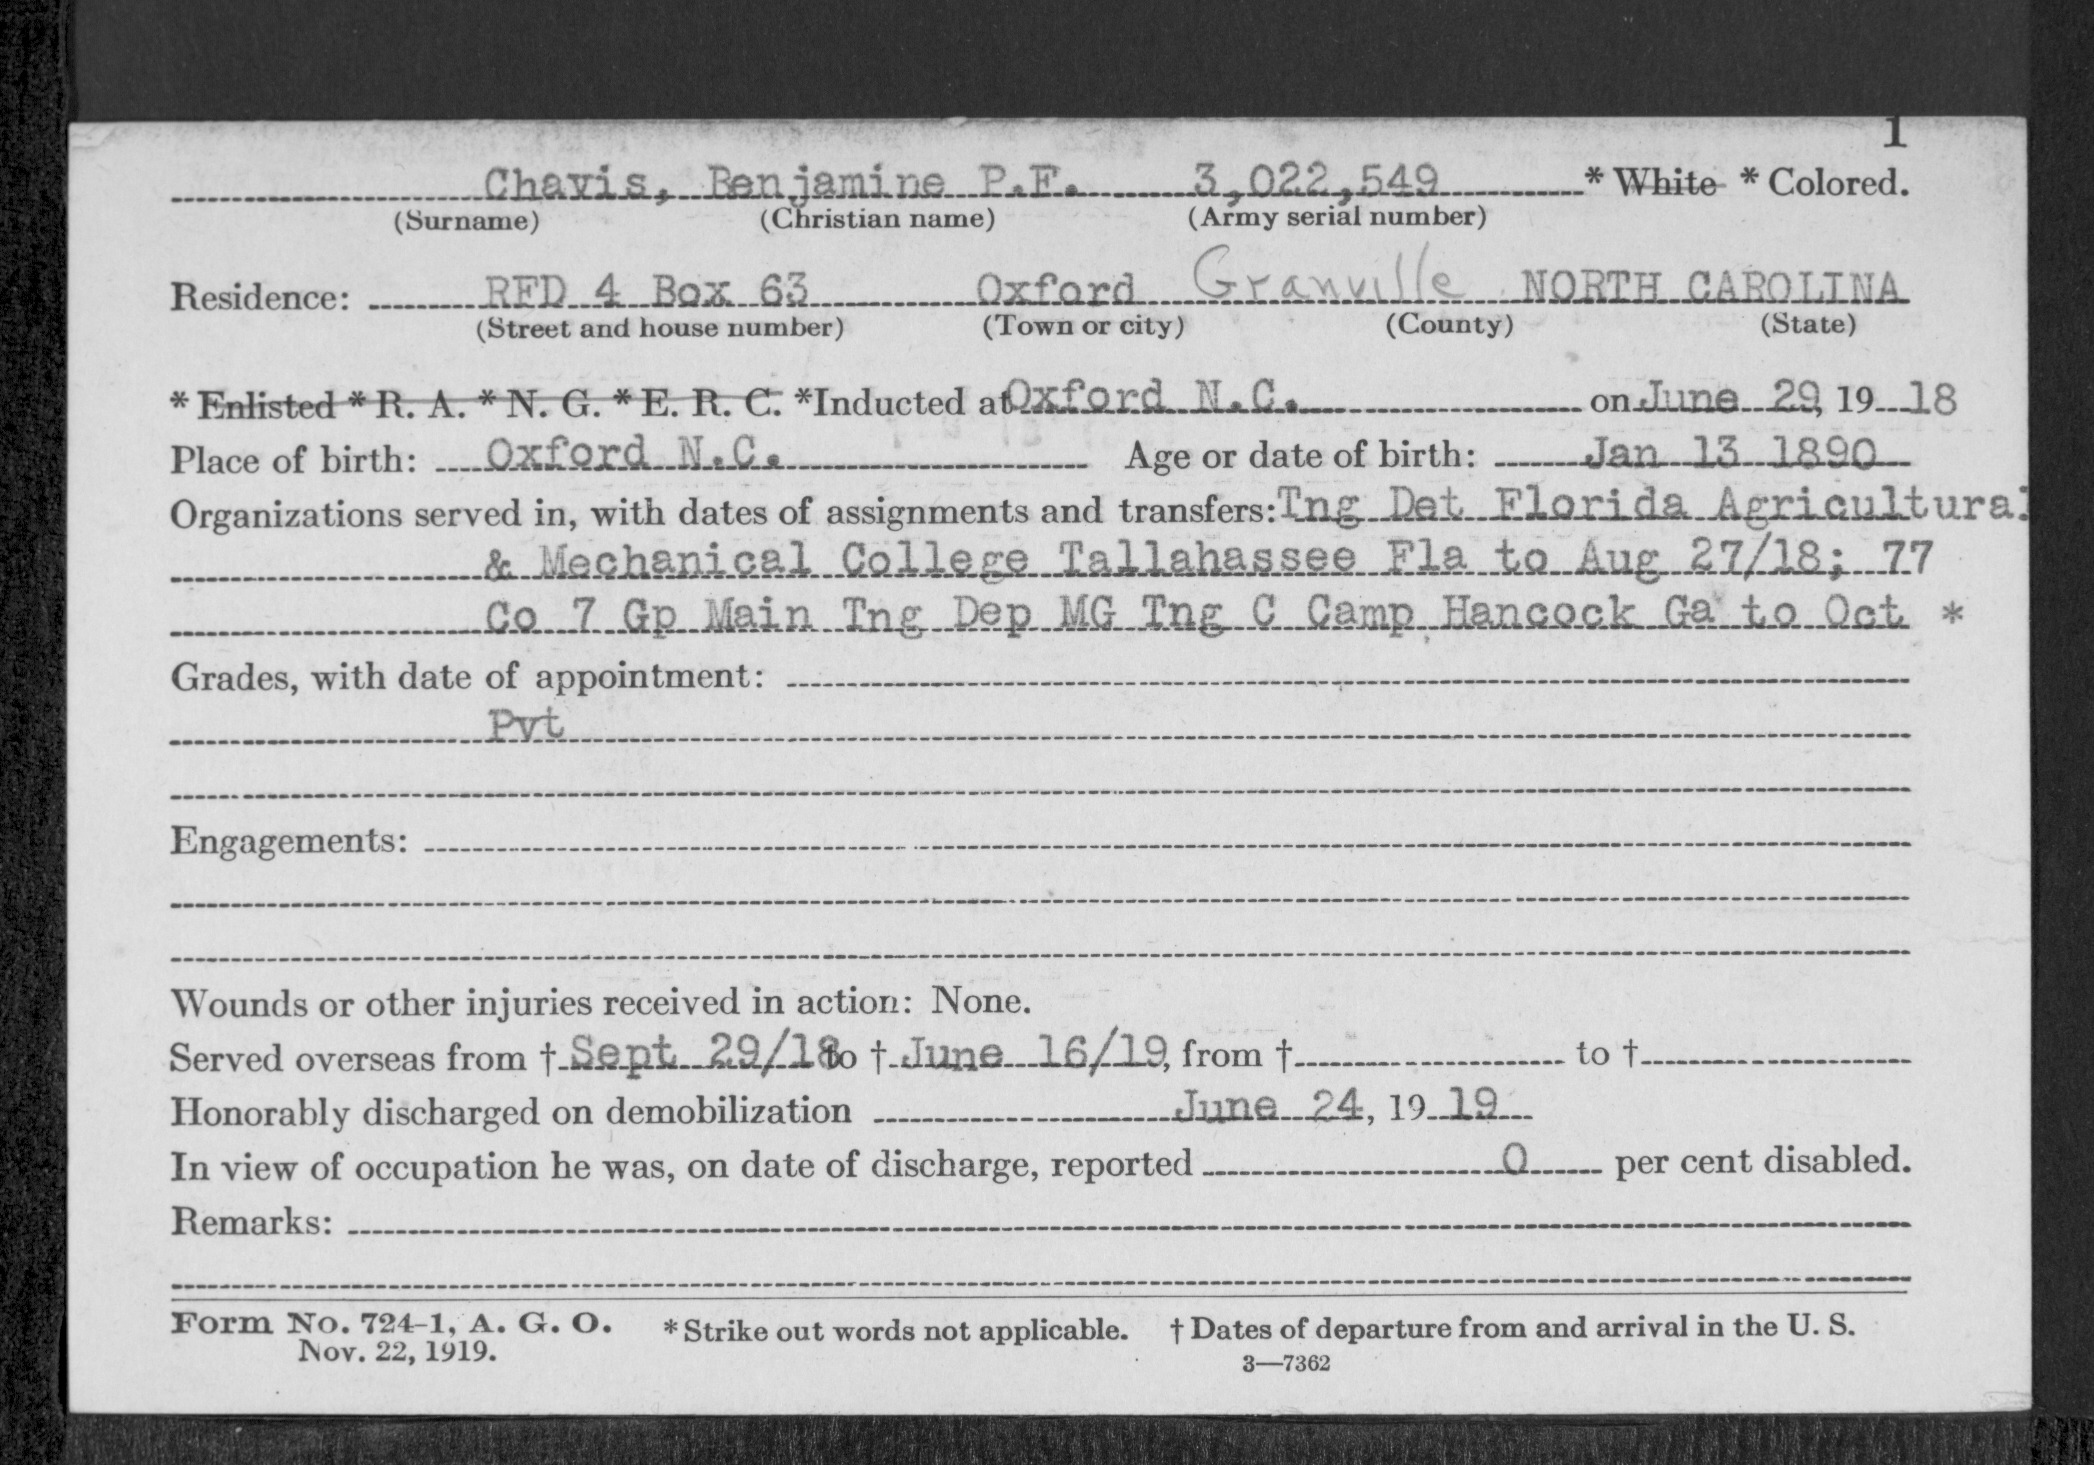 1
Chavis, Benjamine P.F. 3,022,549 * White * Colored.
(Surname) (Christian name) (Army serial number)
Residence: RFD 4 Box 63 Oxford Granville NORTH CAROLINA
(Street and house number) (Town or city) (County) (State)
* Enlisted * R. A. * N. G. * E. R. C. *Inducted at Oxford N.C. on June 29, 19 18
Place of birth: Oxford N.C. Age or date of birth: Jan 13 1890
Organizations served in, with dates of assignments and transfers: Tng Det Florida Agricultural
& Mechanical College Tallahassee Fla to Aug 27/18; 77
Co 7 Gp Main Tng Dep MG Tng C Camp Hancock Ga to Oct *
Grades, with date of appointment:
Pvt
Engagements:
Wounds or other injuries received in action: None.
Served overseas from † Sept 29/18 to † June 16/19, from † to †
Honorably discharged on demobilization June 24, 19 19
In view of occupation he was, on date of discharge, reported 0 per cent disabled.
Remarks:
Form No. 724-1, A. G. O. * Strike out words not applicable. † Dates of departure from and arrival in the U. S.
Nov. 22, 1919. 3—7362